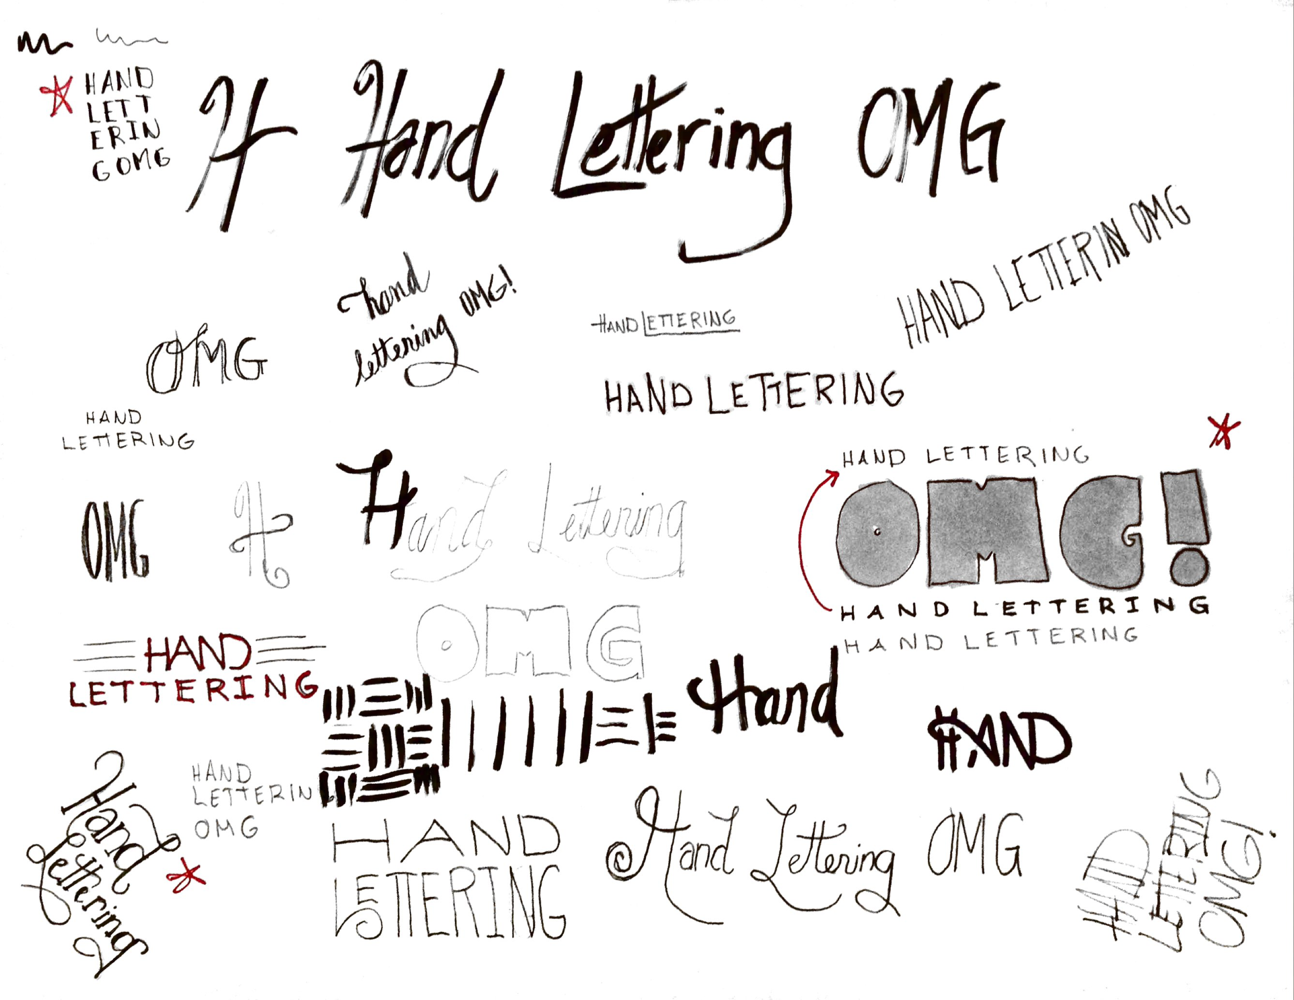 HAND
LETT
ERIN
GOMG
H Hand Lettering OMG
HAND LETTERIN OMG
hand
lettering OMG!
HAND LETTERING
OMG
HAND LETTERING
HAND
LETTERING
Hand Lettering
OMG
H
HAND LETTERING
OMG!
HAND LETTERING
HAND LETTERING
OMG
HAND
LETTERING
Hand
HAND
Hand
Lettering
HAND
LETTERIN
OMG
HAND
LETTERING
Hand Lettering OMG
HAND
LETTERING
OMG!